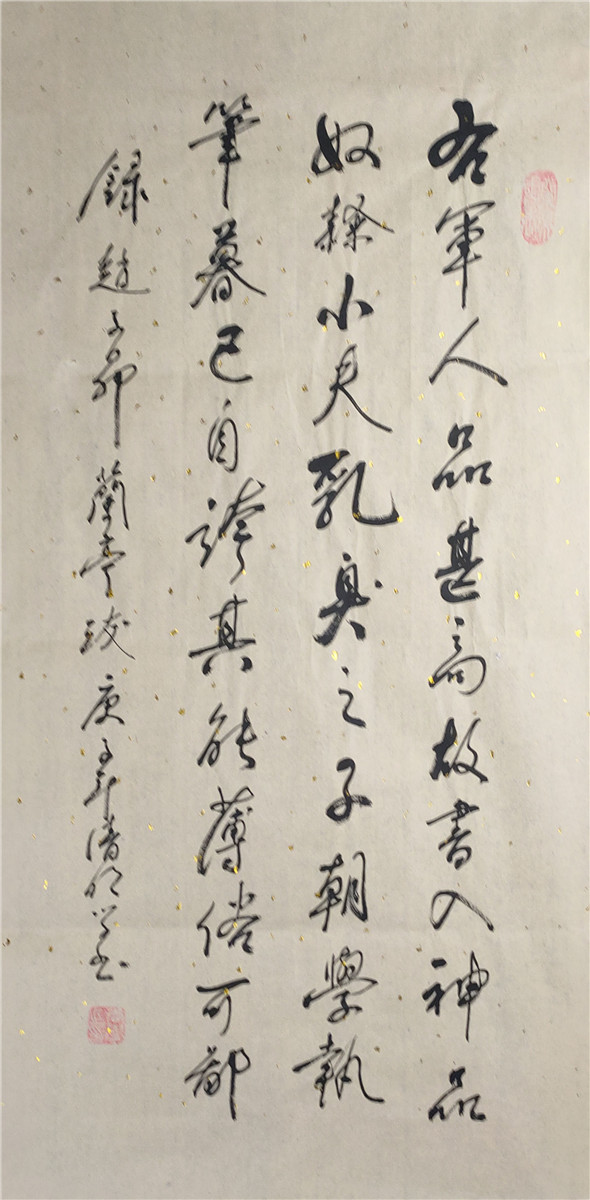 右軍人品甚高故書入神品
奴隸小夫乳臭之子朝學執
筆暮已自誇其能薄俗可鄙
錄趙子昂蘭亭跋庚子年潘明學書